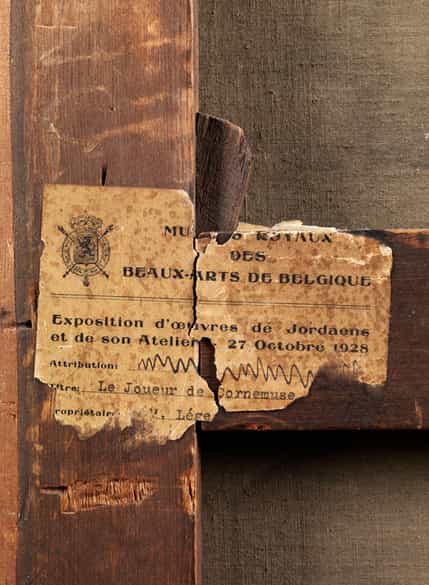 ROYAUX
DES
BEAUX-ARTS DE BELGIQUE
Exposition d'œuvres de Jordaens
et de son Atelier 27 Octobre 1928
Attribution:
Titre: Le Joueur de Cornemuse